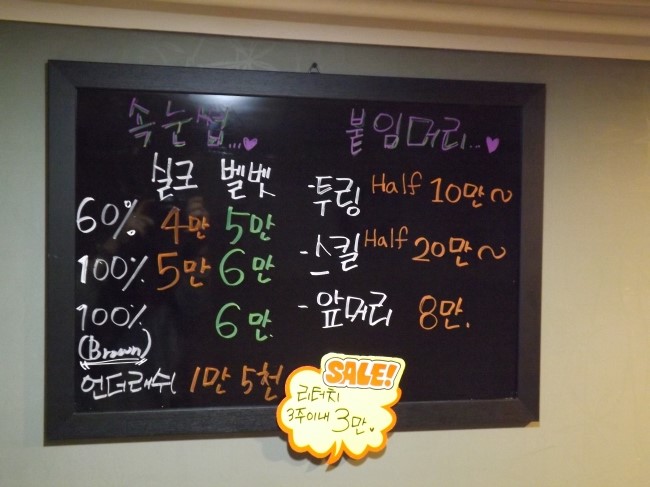 속눈썹...♥
실크 벨벳
60% 4만 5만
100% 5만 6만
100% 6만
(Brown)
언더래쉬 1만 5천
붙임머리...♥
-투링 Half 10만~
-스킬 Half 20만~
-앞머리 8만.
SALE!
리터치
3주이내 3만.